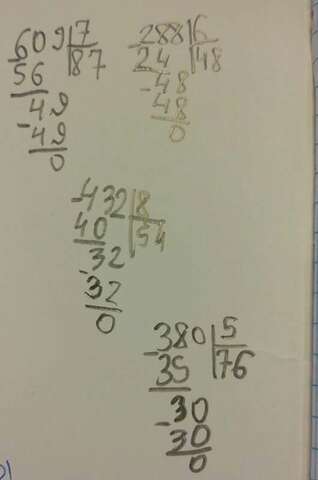 -609|7
56|87
-49
49
0
-288|6
24|48
-48
48
0
-432|8
40|54
-32
32
0
-380|5
35|76
-30
30
0